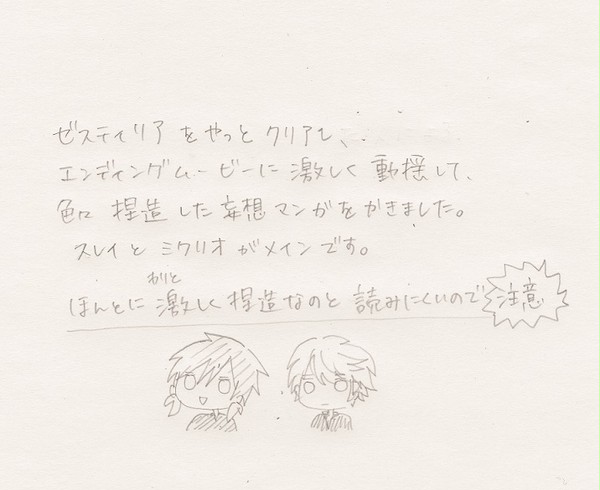 ゼスティリアをやっとクリアし、
エンディングムービーに激しく動揺して、
色ロ捏造した妄想マンガをかきました。
スレイとミクリオがメインです。
わりと
ほんとに激しく捏造なのと読みにくいので注意